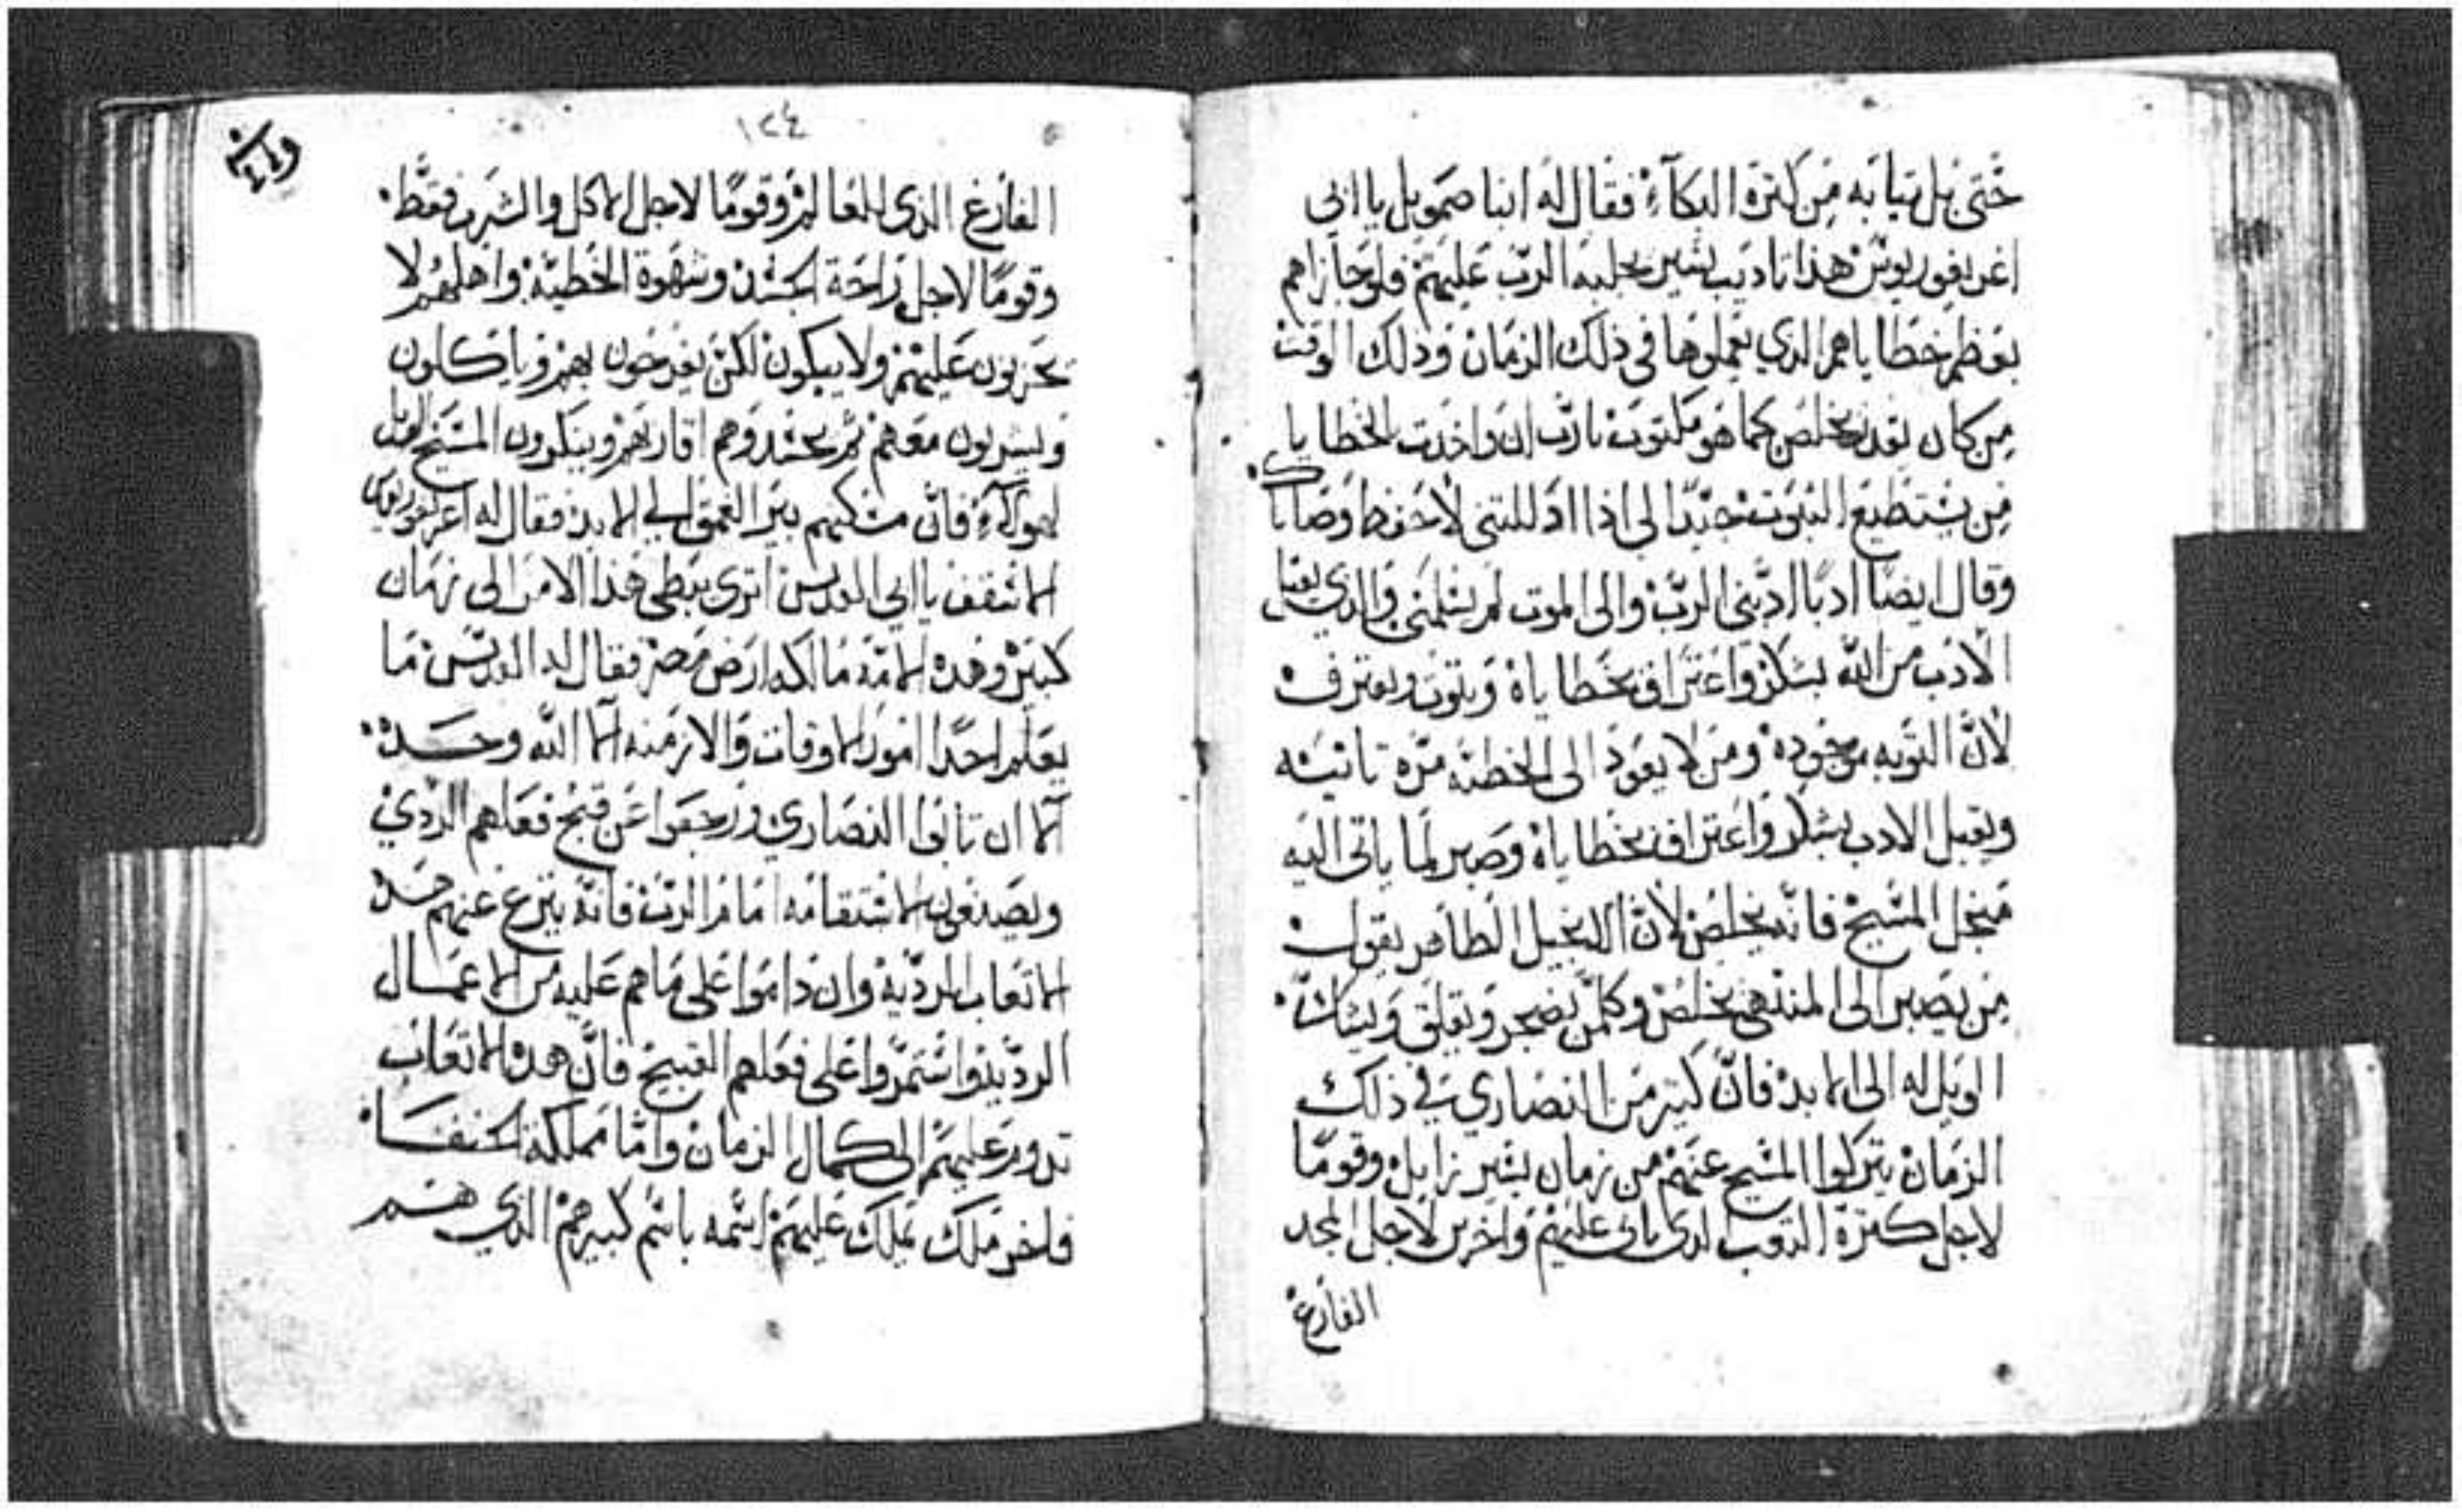 حتى بل تيابه من كترة البكآء فقال له انبا صمويل يا ابني
اغريغوريوس هذا تاديب يسير يجلبه الرب عليهم فلو جازاهم
بعظم خطاياهم الدي يعملوها في ذلك الزمان وذلك الوقت
من كان يقدر يخلص كما هو مكتوب يا رب ان واخدت بالخطايا
من يستطيع التبوت جيدا لي اذا ادللتني لاحفظ وصاياك
وقال ايضا ادبا ادبني الرب والى الموت لم يسلمني والدي يقبل
الادب من الله بشكر واعتراف بخطاياه ويتوب ويعترف
لان التوبه موجوده ومن لا يعود الى الخطيه مره تانيه
ويقبل الادب بشكر واعتراف بخطاياه وصبر لما ياتي اليه
من اجل المسيح فانه يخلص لان الانجيل الطاهر يقول
من يصبر الى المنتهى يخلص وكلمن يضجر ويقلق ويشك
الويل له الى الابد فان كتير من النصاري في ذلك
الزمان يتركوا المسيح عنهم من زمان يسير زايل وقوما
لاجل كترة التعب الدي ياتي عليهم واخرين لاجل المجد
الفارغ
١٢٤
الفارغ الذي للعالم وقوما لاجل الاكل والشرب فقط
وقوما لاجل راحة الجسد وشهوة الخطية واهلهم لا
يحزنون عليهم ولا يبكون لكن يفرحون بهم وياكلون
ويشربون معهم تم يحسدوهم اقاربهم وينكرون المسيح
هولآء فان مسكنهم بير العمق الى الابد فقال له اغريغوريوس
الاسقف يا ابي القديس اترى يبطى هذا الامر الى زمان
كتير وهده الامة مالكه ارض مصر فقال له القديس ما
يعلم احدا امور الاوقات والازمنه الا الله وحده
الا ان تابوا النصاري ورجعوا عن قبح فعلهم الردي
ويصنعون الاستقامه امام الرب فانه ينزع عنهم هده
الاتعاب الرديه وان داموا على ما هم عليه من الاعمال
الرديه واستمروا على فعلهم القبيح فان هده الاتعاب
تدور عليهم الى كمال الزمان واما مملكة الحنفا
فاخر ملك يملك عليهم اسمه باسم كبيرهم الدي هم